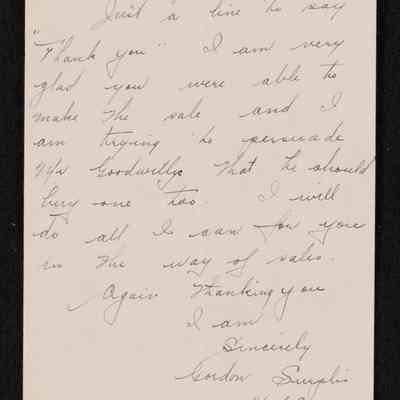 Just a line to say
"Thank you" I am very
glad you were able to
make the sale and I
am trying to persuade
that he should
buy one too. I will
do all I can for you
in the way of sales.
Again thanking you
I am
Sincerely
Gordon